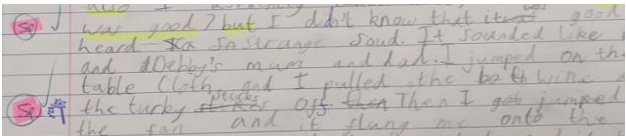 also I
Sp was good? but I didn't know that it good
heard so strange soud. It sounded like
and Debby's mum and dad. I jumped on th
table Cloth and I pulled the wine
Sp the turky off then Then I got jumped
the fan and it flung me onto the